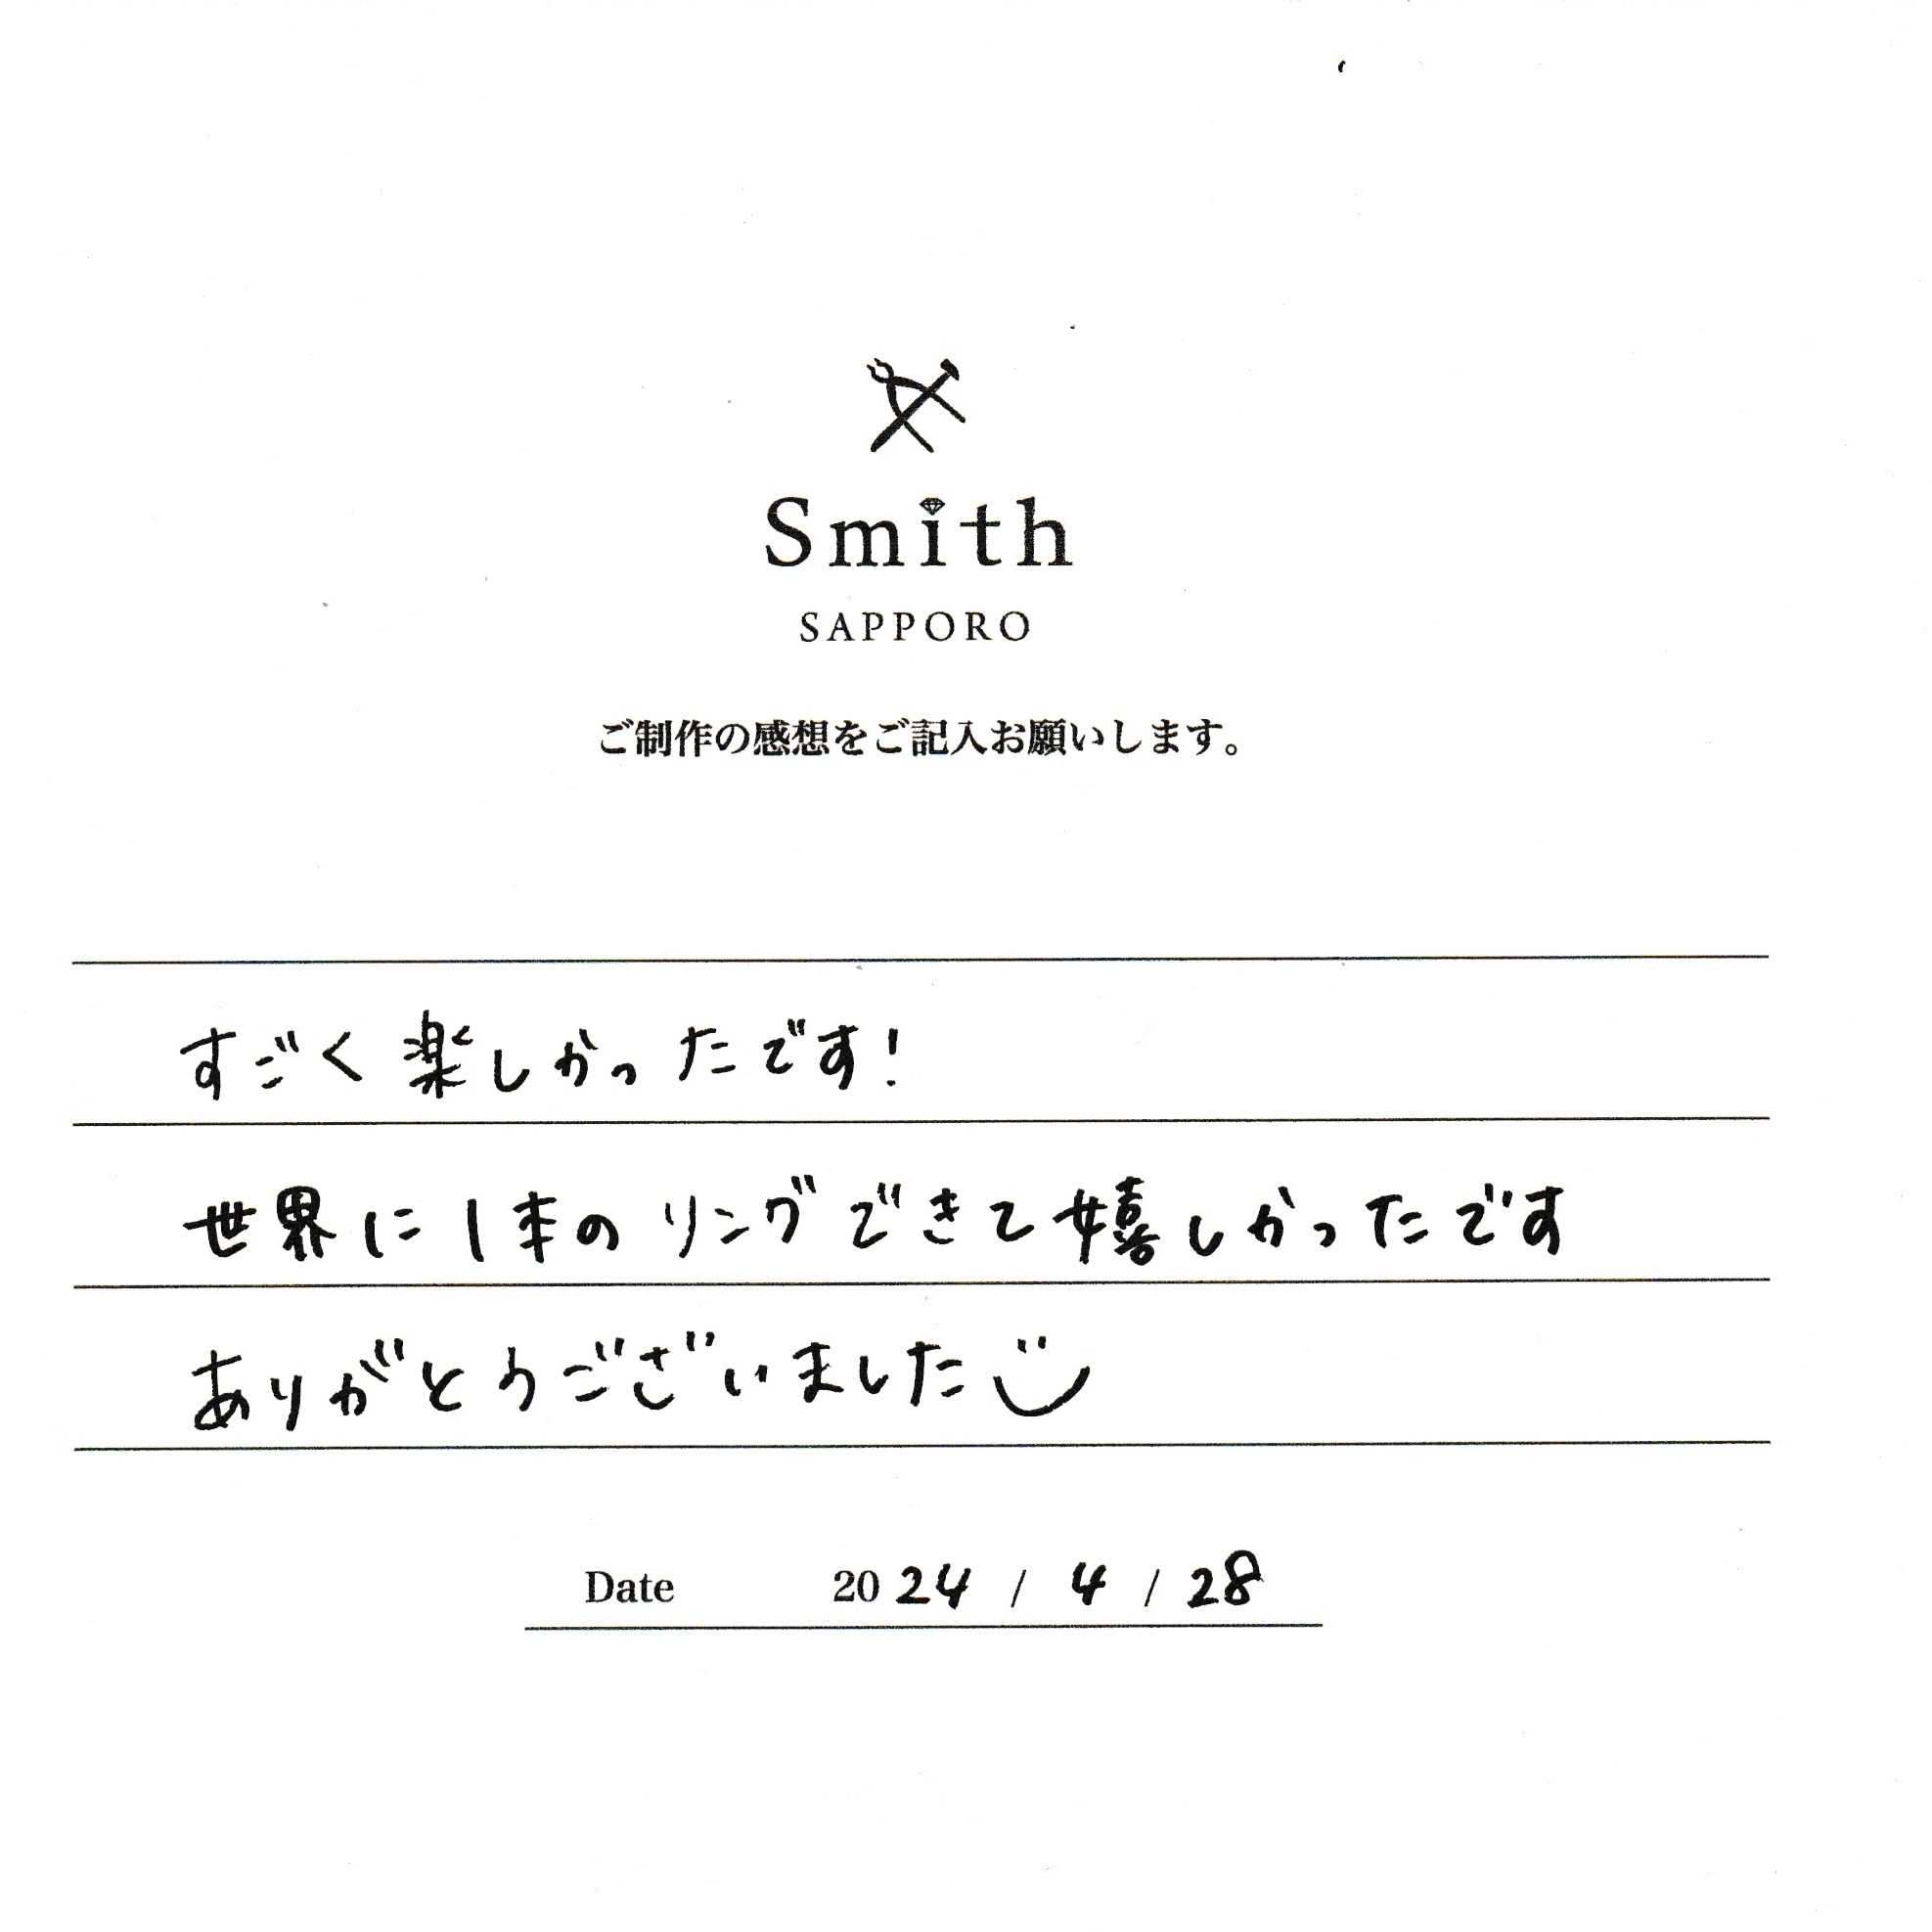 Smith
SAPPORO
ご制作の感想をご記入お願いします。
すごく楽しかったです!
世界に1本のリングできて嬉しかったです
ありがとうございました
Date 2024 / 4 / 28